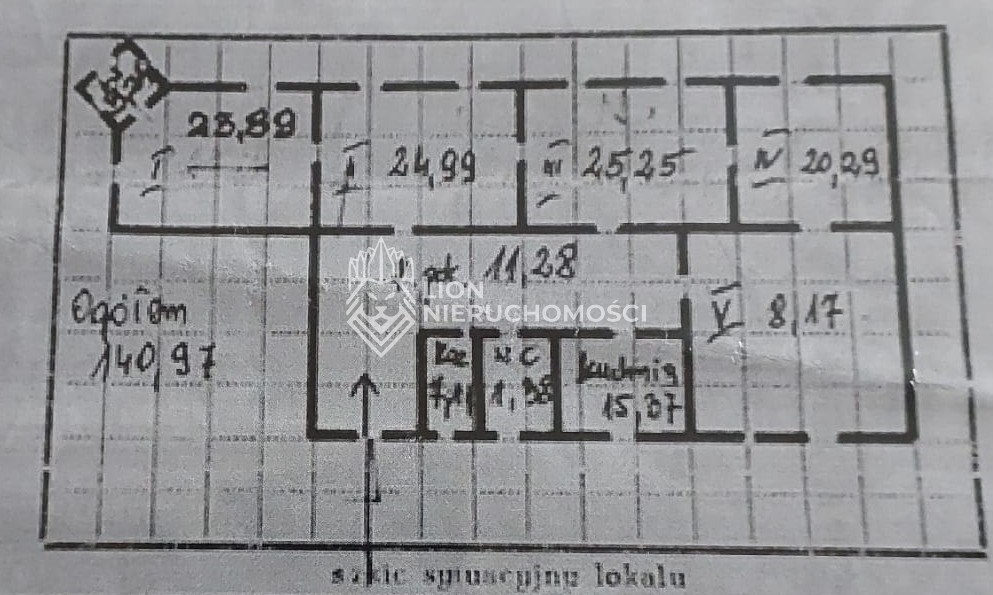 23,89
I
II 24,99
III 25,25
IV 20,29
pok 11,28
LION
NIERUCHOMOŚCI
V 8,17
Ogółem
140,97
Łaz
7,11
WC
1,38
kuchnia
15,37
szkic sytuacyjny lokalu